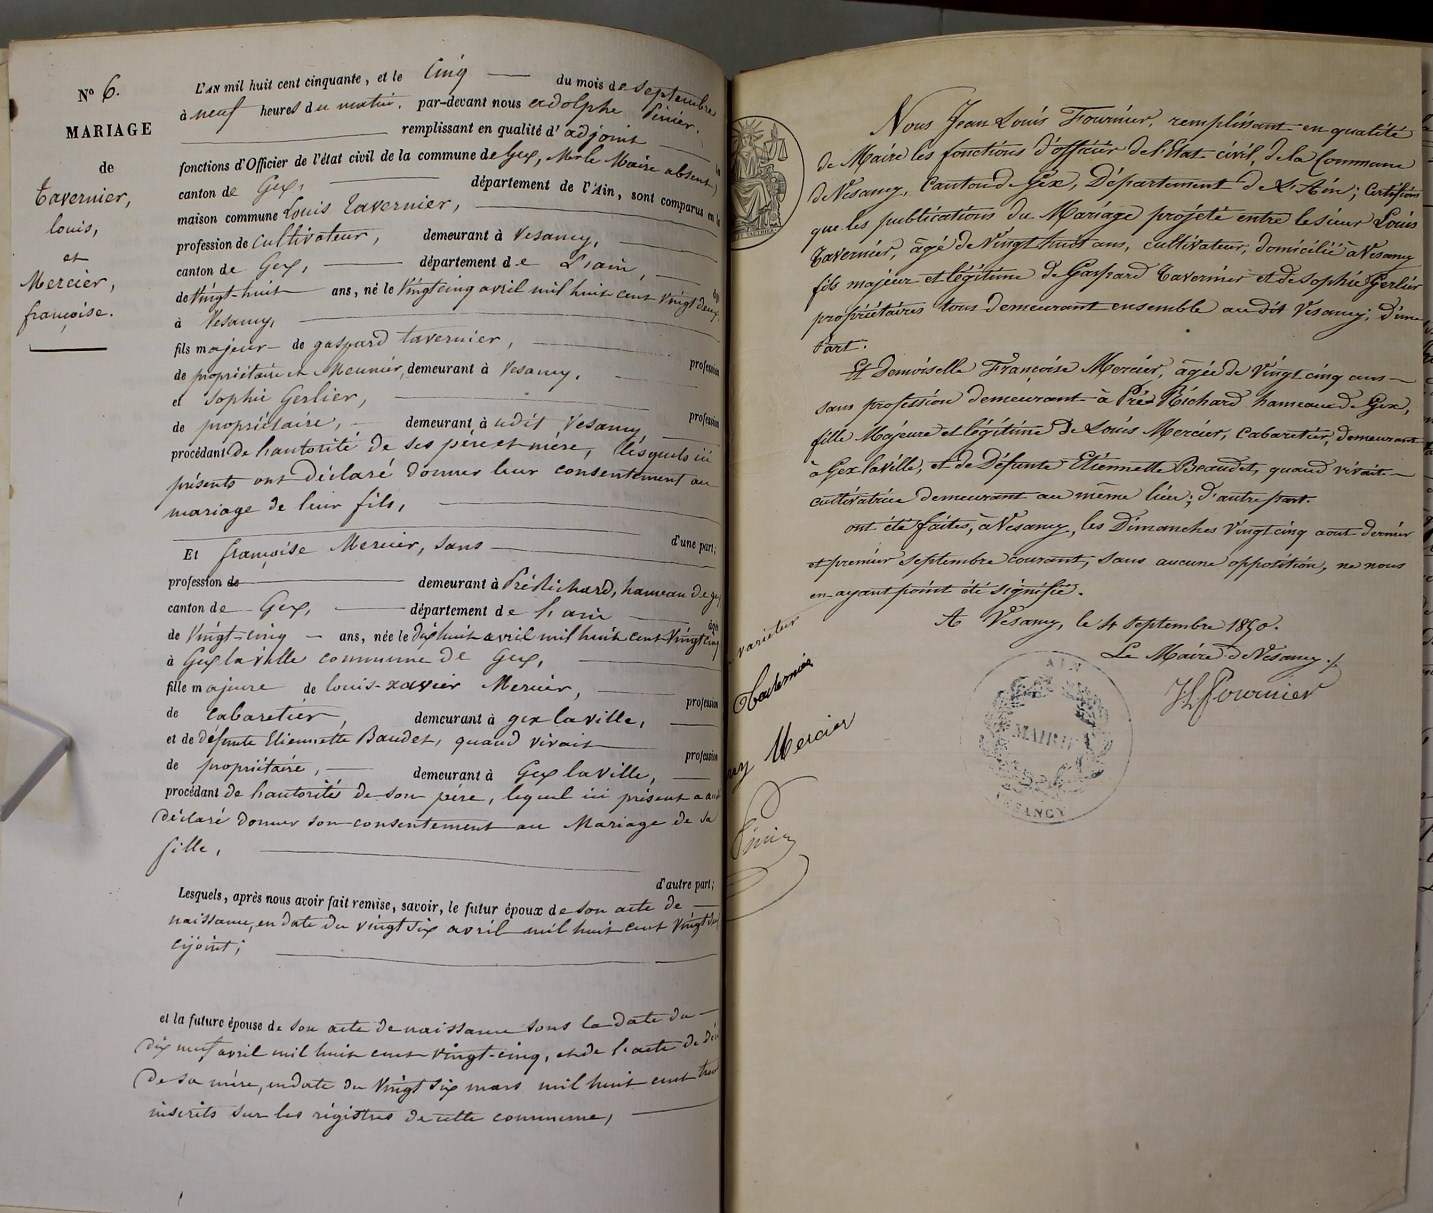 N° 6.
MARIAGE
de
Tavernier,
louis,
et
Mercier,
françoise.
L'AN mil huit cent cinquante, et le Cinq du mois de septembre
à neuf heures du matin, par-devant nous adolphe
remplissant en qualité d'adjoint
fonctions d'Officier de l'état civil de la commune de Gex, Mr le Maire absent,
canton de Gex, département de l'Ain, sont comparus en la
maison commune Louis Tavernier,
profession de cultivateur, demeurant à Vesancy,
canton de Gex, département de L'ain,
de Vingt-huit ans, né le Vingt cinq avril mil huit cent vingt deux,
à Vesancy,
fils majeur de gaspard tavernier, profession
de propriétaire et Meunier, demeurant à Vesancy,
et Sophie Gerlier, profession
de propriétaire, demeurant à udit Vesancy
procédant de l'autorité de ses père et mère, lesquels ici
présents ont déclaré donner leur consentement au
mariage de leur fils,
d'une part;
Et françoise Mercier, sans
profession de demeurant à Pré Richard, hameau de gex,
canton de Gex, département de l'ain âgée
de Vingt-cinq ans, née le dix huit avril mil huit cent Vingt cinq
à Gex la ville commune de Gex,
fille majeure de louis-xavier Mercier, profession
de cabaretier, demeurant à gex la ville,
et de défunte Etiennette Baudet, quand vivait profession
de propriétaire, demeurant à Gex la Ville,
procédant de l'autorité de son père, lequel ici présent a aussi
déclaré donner son consentement au Mariage de sa
fille,
d'autre part;
Lesquels, après nous avoir fait remise, savoir, le futur époux de son acte de
naissance, en date du vingt six avril mil huit cent Vingt deux
cijoint;
et la future épouse de son acte de naissance sous la date du
dix neuf avril mil huit cent vingt-cinq, et de l'acte de
de sa mère, en date du Vingt six mars mil huit cent
inscrits sur les régistres de cette commune,
Nous Jean Louis Fournier, remplissant en qualité
de Maire les fonctions d'officier de l'Etat civil, de la Commune
de Vesancy, Canton de Gex, Département de l'Ain; Certifions
que les publications du Mariage projeté entre le sieur Louis
Tavernier, âgé de Vingt huit ans, cultivateur, domicilié à Vesancy
fils majeur et légitime de Gaspard Tavernier et de Sophie Gerlier
propriétaires tous demeurant ensemble au dit Vesancy; d'une
Part.
Et Demoiselle Françoise Mercier, âgée de Vingt cinq ans
sans profession demeurant à Pré Richard hameau de Gex,
fille Majeure et légitime de Louis Mercier, Cabaretier, demeurant
à Gex la Ville, et de Défunte Etiennette Beaudet, quand vivait
cultivatrice demeurant au même lieu; d'autre part.
ont été faites, à Vesancy, les Dimanches Vingt cinq aout dernier
et premier septembre courant, sans aucune opposition, ne nous
en ayant point été signifié.
A Vesancy, le 4 septembre 1850.
Le Maire de Vesancy
JL Fournier
AIN
MAIRIE
VESANCY
varietur
Mercier